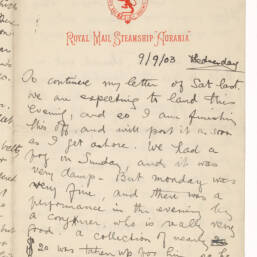 ROYAL MAIL STEAMSHIP "AURANIA."
9/9/03 Wednesday
To continue my letter of Sat. last.
We are expecting to land this
evening, and so I am finishing
this off, and will post it as soon
as I get ashore. We had a
fog on Sunday, and it was
very damp. But Monday was
very fine, and there was a
performance in the evening by
a conjurer, who is really very
good. a collection of nearly
$20 was taken up for him, as he